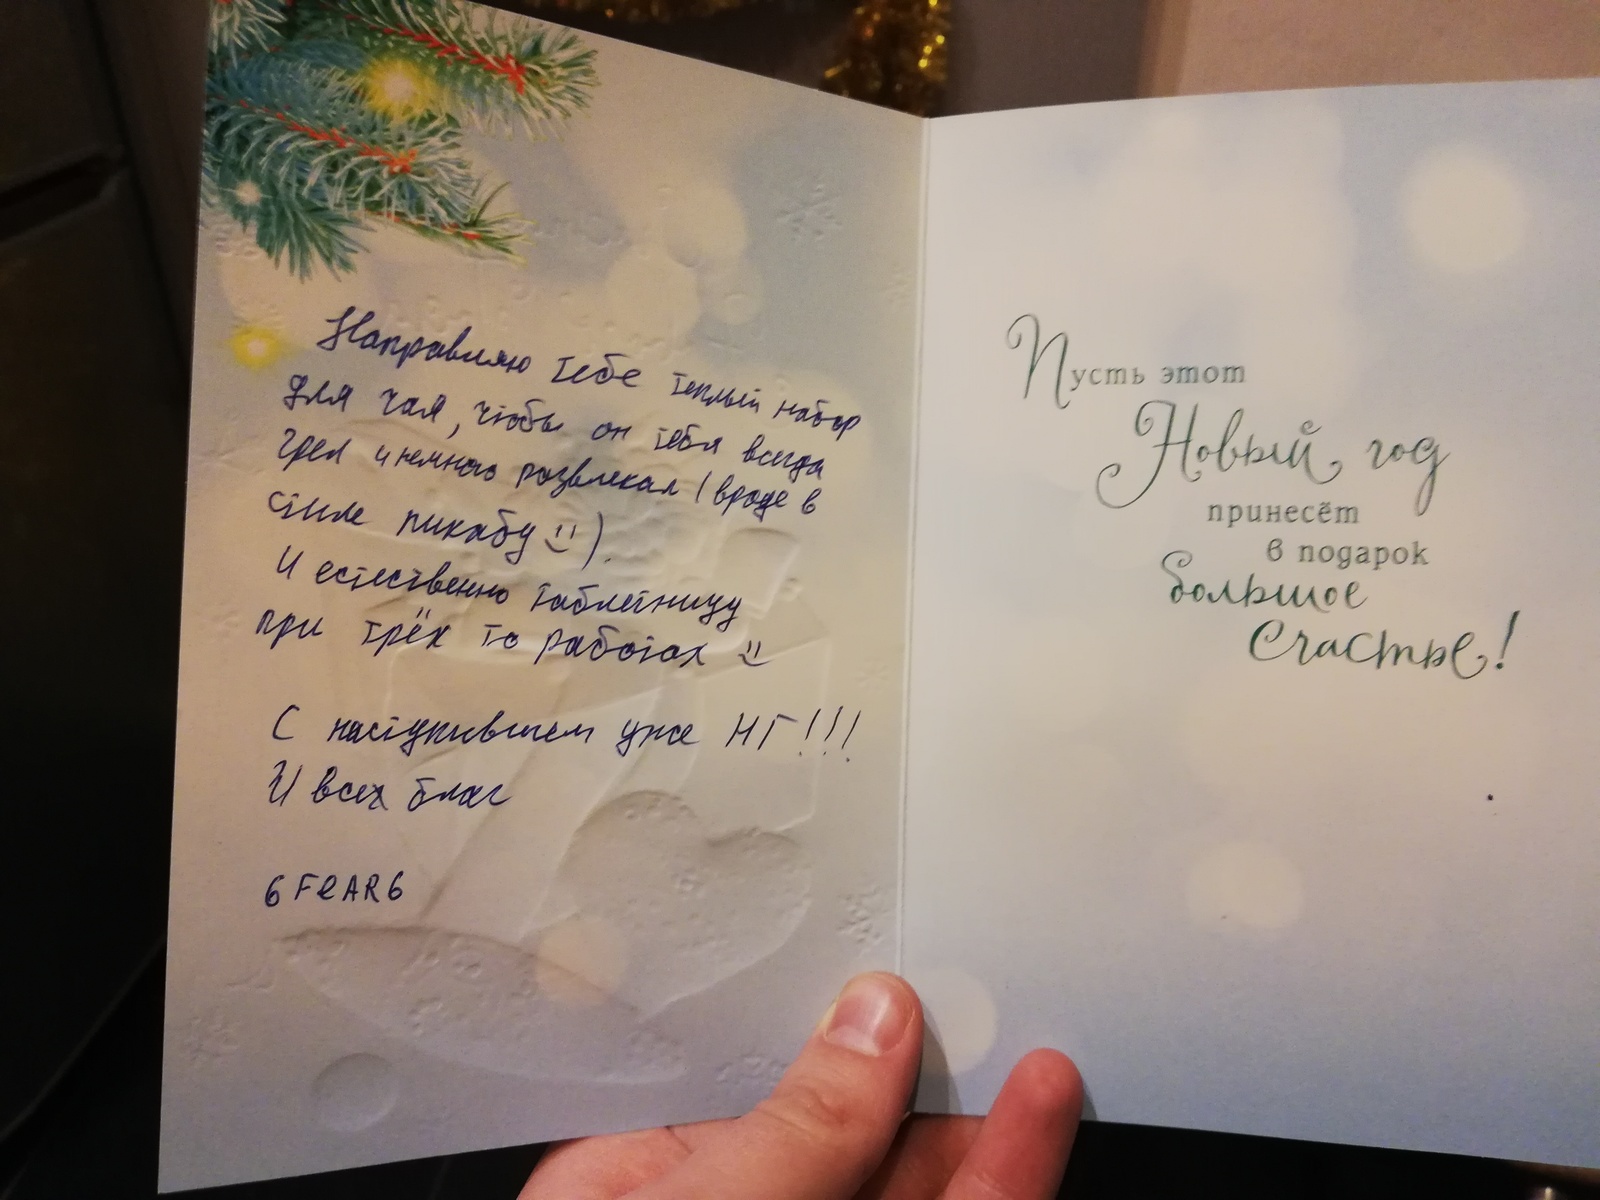 Направляю тебе теплый набор
для чая, чтобы он тебя всегда
грел и немного развлекал (вроде в
стиле пикабу :)).
И естественно таблетницу
при трёх то работах :)
С наступившем уже НГ!!!
И всех благ
6FeAR6
Пусть этот
Новый год
принесёт
в подарок
большое
счастье!